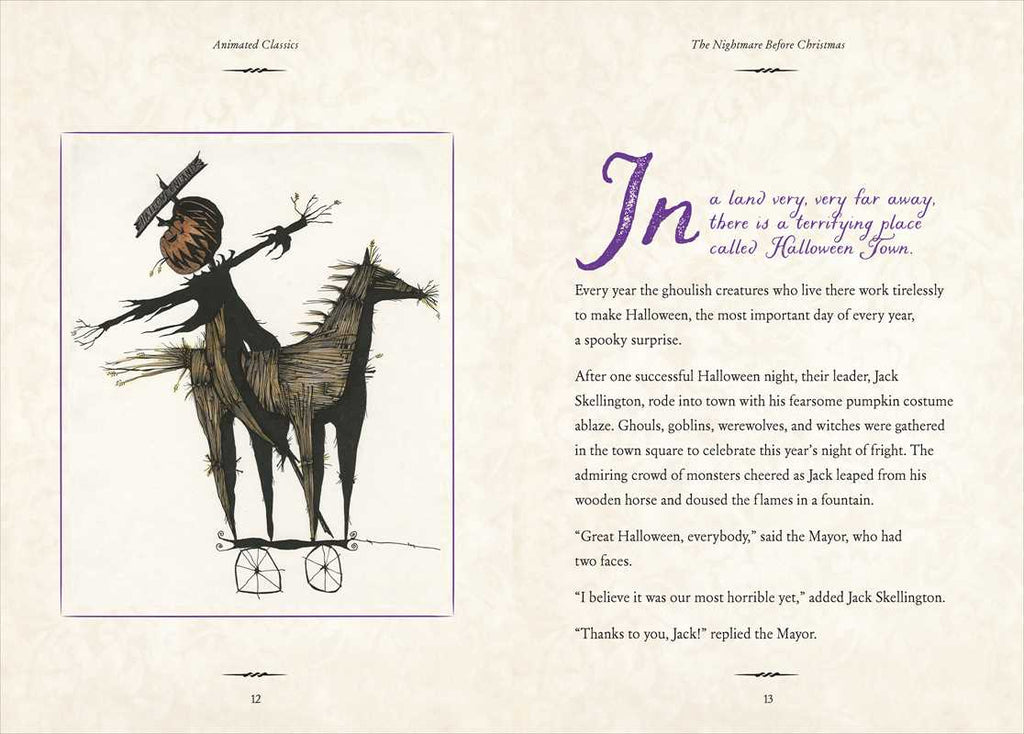 Animated Classics
12
The Nightmare Before Christmas
In a land very, very far away,
there is a terrifying place
called Halloween Town.
Every year the ghoulish creatures who live there work tirelessly
to make Halloween, the most important day of every year,
a spooky surprise.
After one successful Halloween night, their leader, Jack
Skellington, rode into town with his fearsome pumpkin costume
ablaze. Ghouls, goblins, werewolves, and witches were gathered
in the town square to celebrate this year’s night of fright. The
admiring crowd of monsters cheered as Jack leaped from his
wooden horse and doused the flames in a fountain.
“Great Halloween, everybody,” said the Mayor, who had
two faces.
“I believe it was our most horrible yet,” added Jack Skellington.
“Thanks to you, Jack!” replied the Mayor.
13